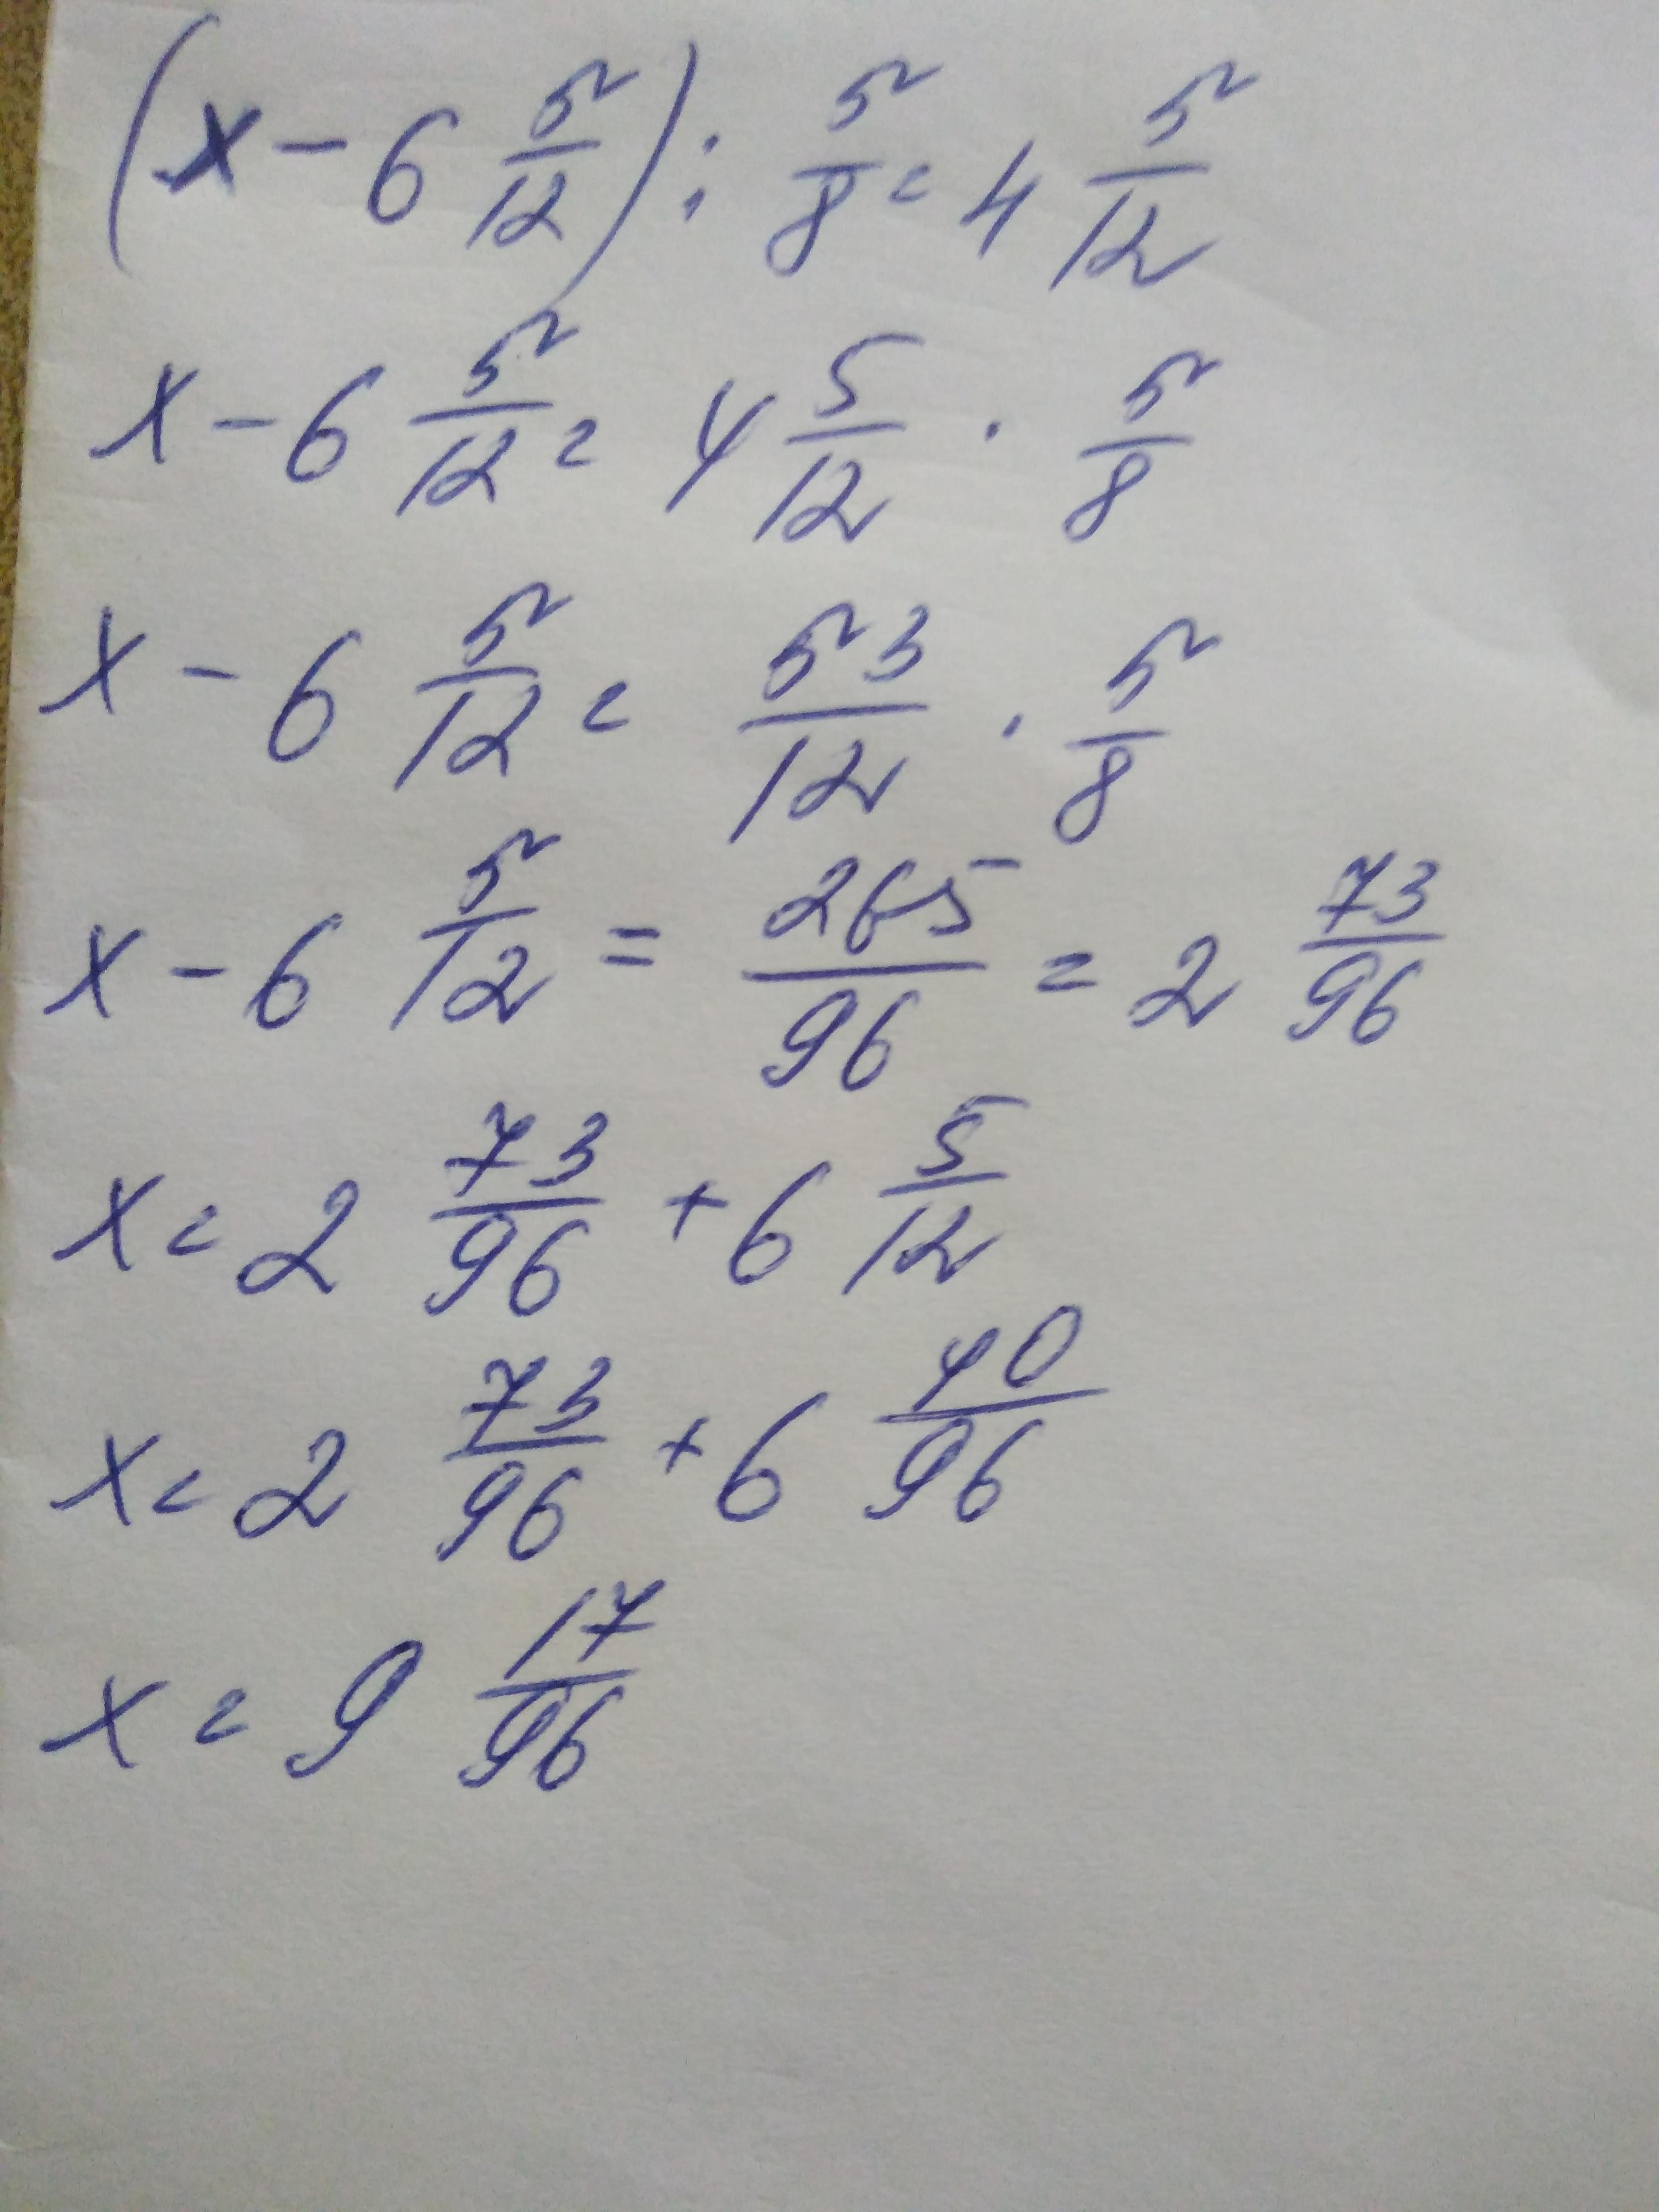 (x - 6 5/12) : 5/8 = 4 5/12
x - 6 5/12 = 4 5/12 · 5/8
x - 6 5/12 = 53/12 · 5/8
x - 6 5/12 = 265/96 = 2 73/96
x = 2 73/96 + 6 5/12
x = 2 73/96 + 6 40/96
x = 9 17/96